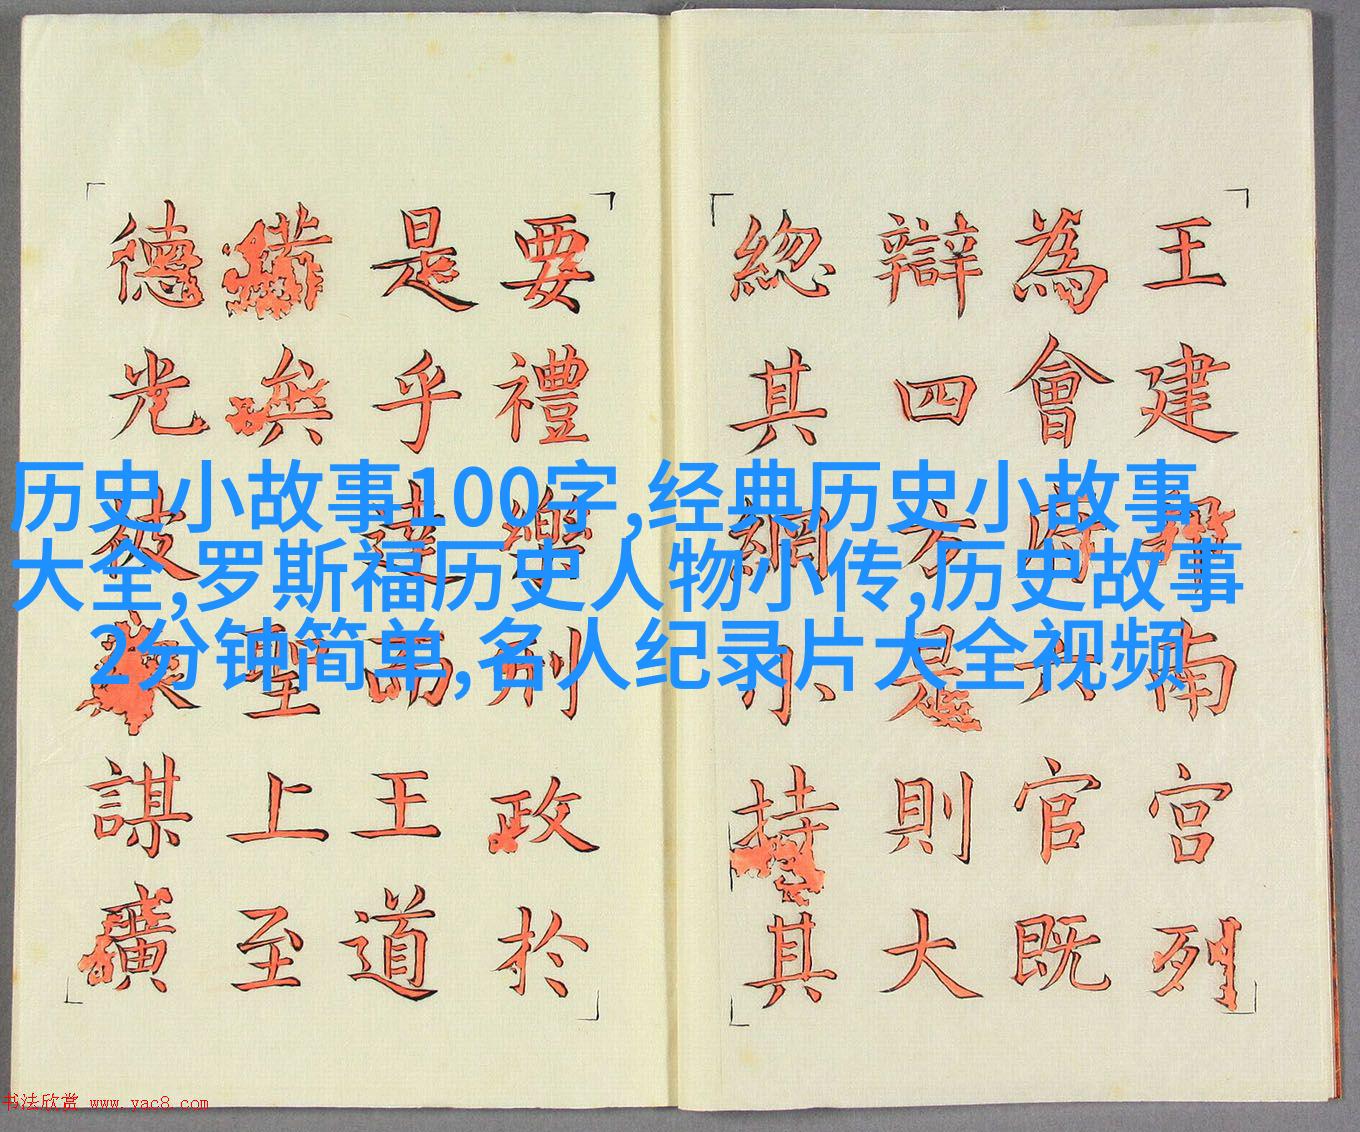 王建南宫列
為會府六官既
辯四方則大
總其網小持其
要禮樂刑政於
是乎達而王道
備矣聖上至
德光被謀
历史小故事100字,经典历史小故事
大全,罗斯福历史人物小传,历史故事
2分钟简单,名人纪录片大全视频
书法欣赏 www.yac8.com